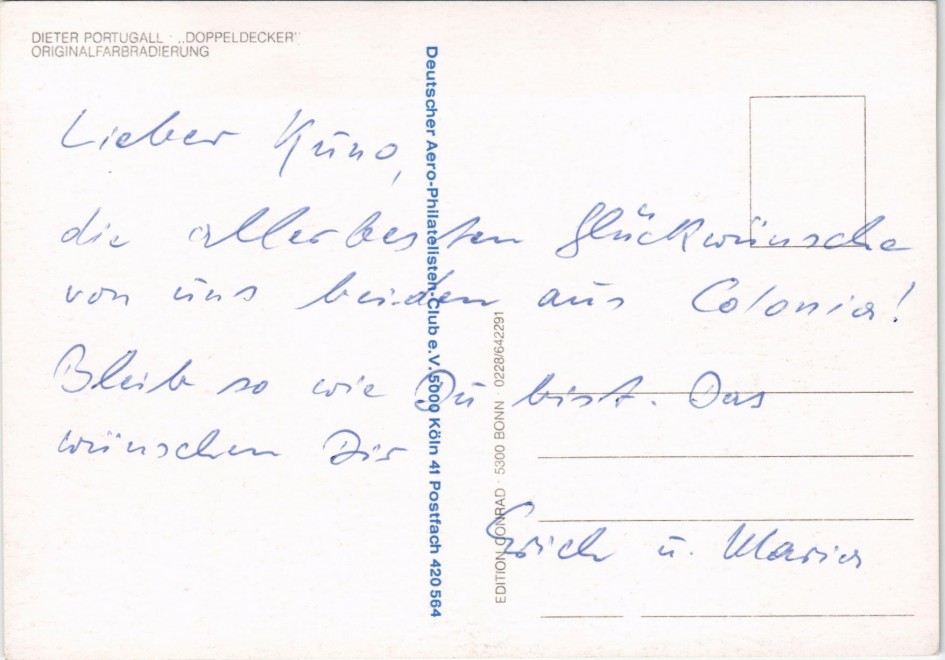 DIETER PORTUGALL · „DOPPELDECKER“
ORIGINALFARBRADIERUNG
Lieber Kuno,
die allerbesten Glückwünsche
von uns beiden aus Colonia!
Bleib so wie Du bist. Das
wünschen Dir
Erich u. Maria
Deutscher Aero-Philatelisten-Club e.V. 5000 Köln 41 Postfach 420 564
EDITION CONRAD · 5300 BONN · 0228/642291